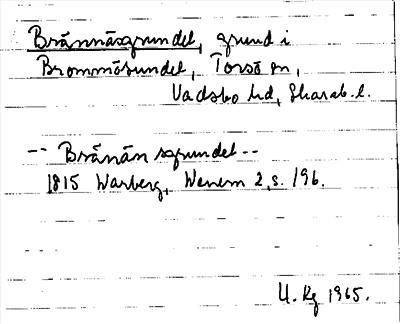 Brännäsgrundet, grund i
Brommösundet, Torsö sn,
Vadsbo hd, Skarab. l.
-- Brånän sgrundet --
1815 Warberg, Wenern 2, s. 196.
U. Kg 1965.